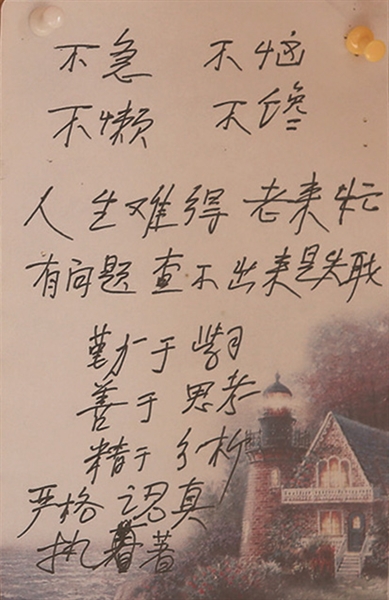 不急 不恼
不懒 不馋
人生难得 老来忙
有问题 查不出来是失职
勤于 学习
善于 思考
精于 分析
严格 認真
执著